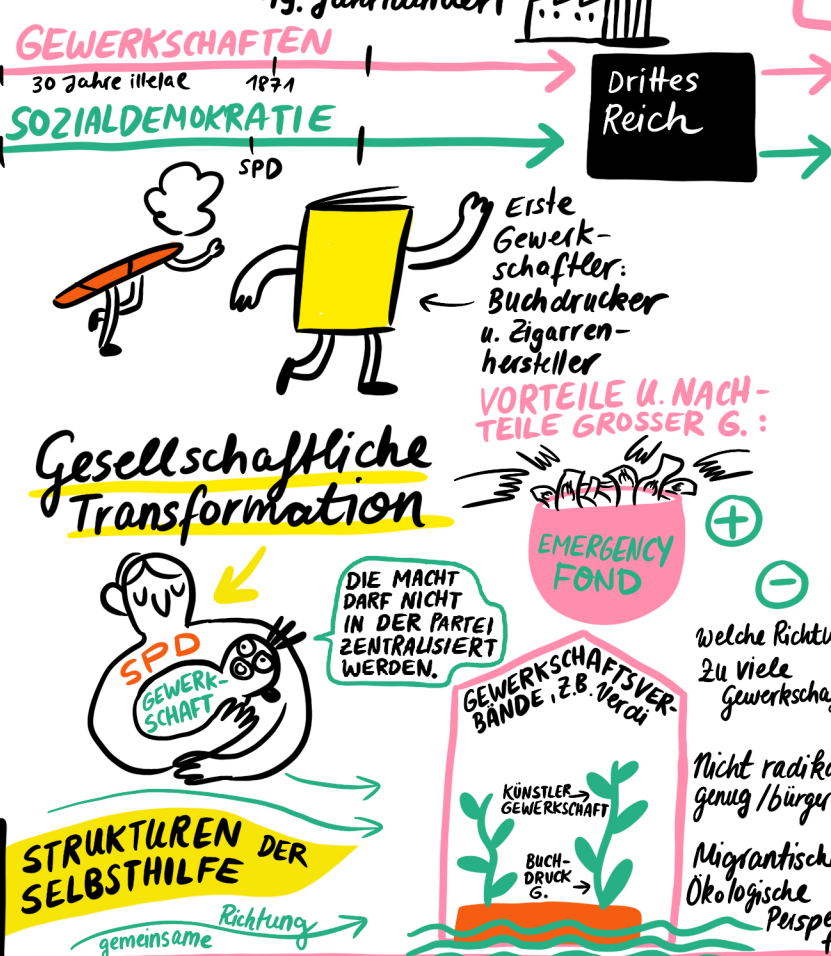 19. Jahrhundert
GEWERKSCHAFTEN
30 Jahre illelal
1871
SOZIALDEMOKRATIE
SPD
Drittes
Reich
Erste
Gewerk-
schaftler:
Buchdrucker
u. Zigarren-
hersteller
VORTEILE U. NACH-
TEILE GROSSER G. :
Gesellschaftliche
Transformation
EMERGENCY
FOND
+
-
DIE MACHT
DARF NICHT
IN DER PARTEI
ZENTRALISIERT
WERDEN.
SPD
GEWERK-
SCHAFT
welche Richtu
zu viele
Gewerkscha
GEWERKSCHAFTSVER-
BÄNDE, Z.B. Verdi
Nicht radika
genug / bürger
KÜNSTLER
GEWERKSCHAFT
BUCH-
DRUCK
G.
Migrantisch
Ökologische
Perspe
STRUKTUREN DER
SELBSTHILFE
gemeinsame Richtung